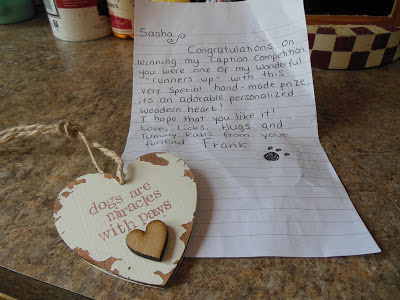 Sasha,
Congratulations on
winning my Caption Competition
you were one of my wonderful
"runners up" with this
very special hand-made prize
its an adorable personalized
wooden heart!
I hope that you like it!
Love, Licks, Hugs and
Tummy Rubs from your
furiend Frank
dogs are
miracles
with paws